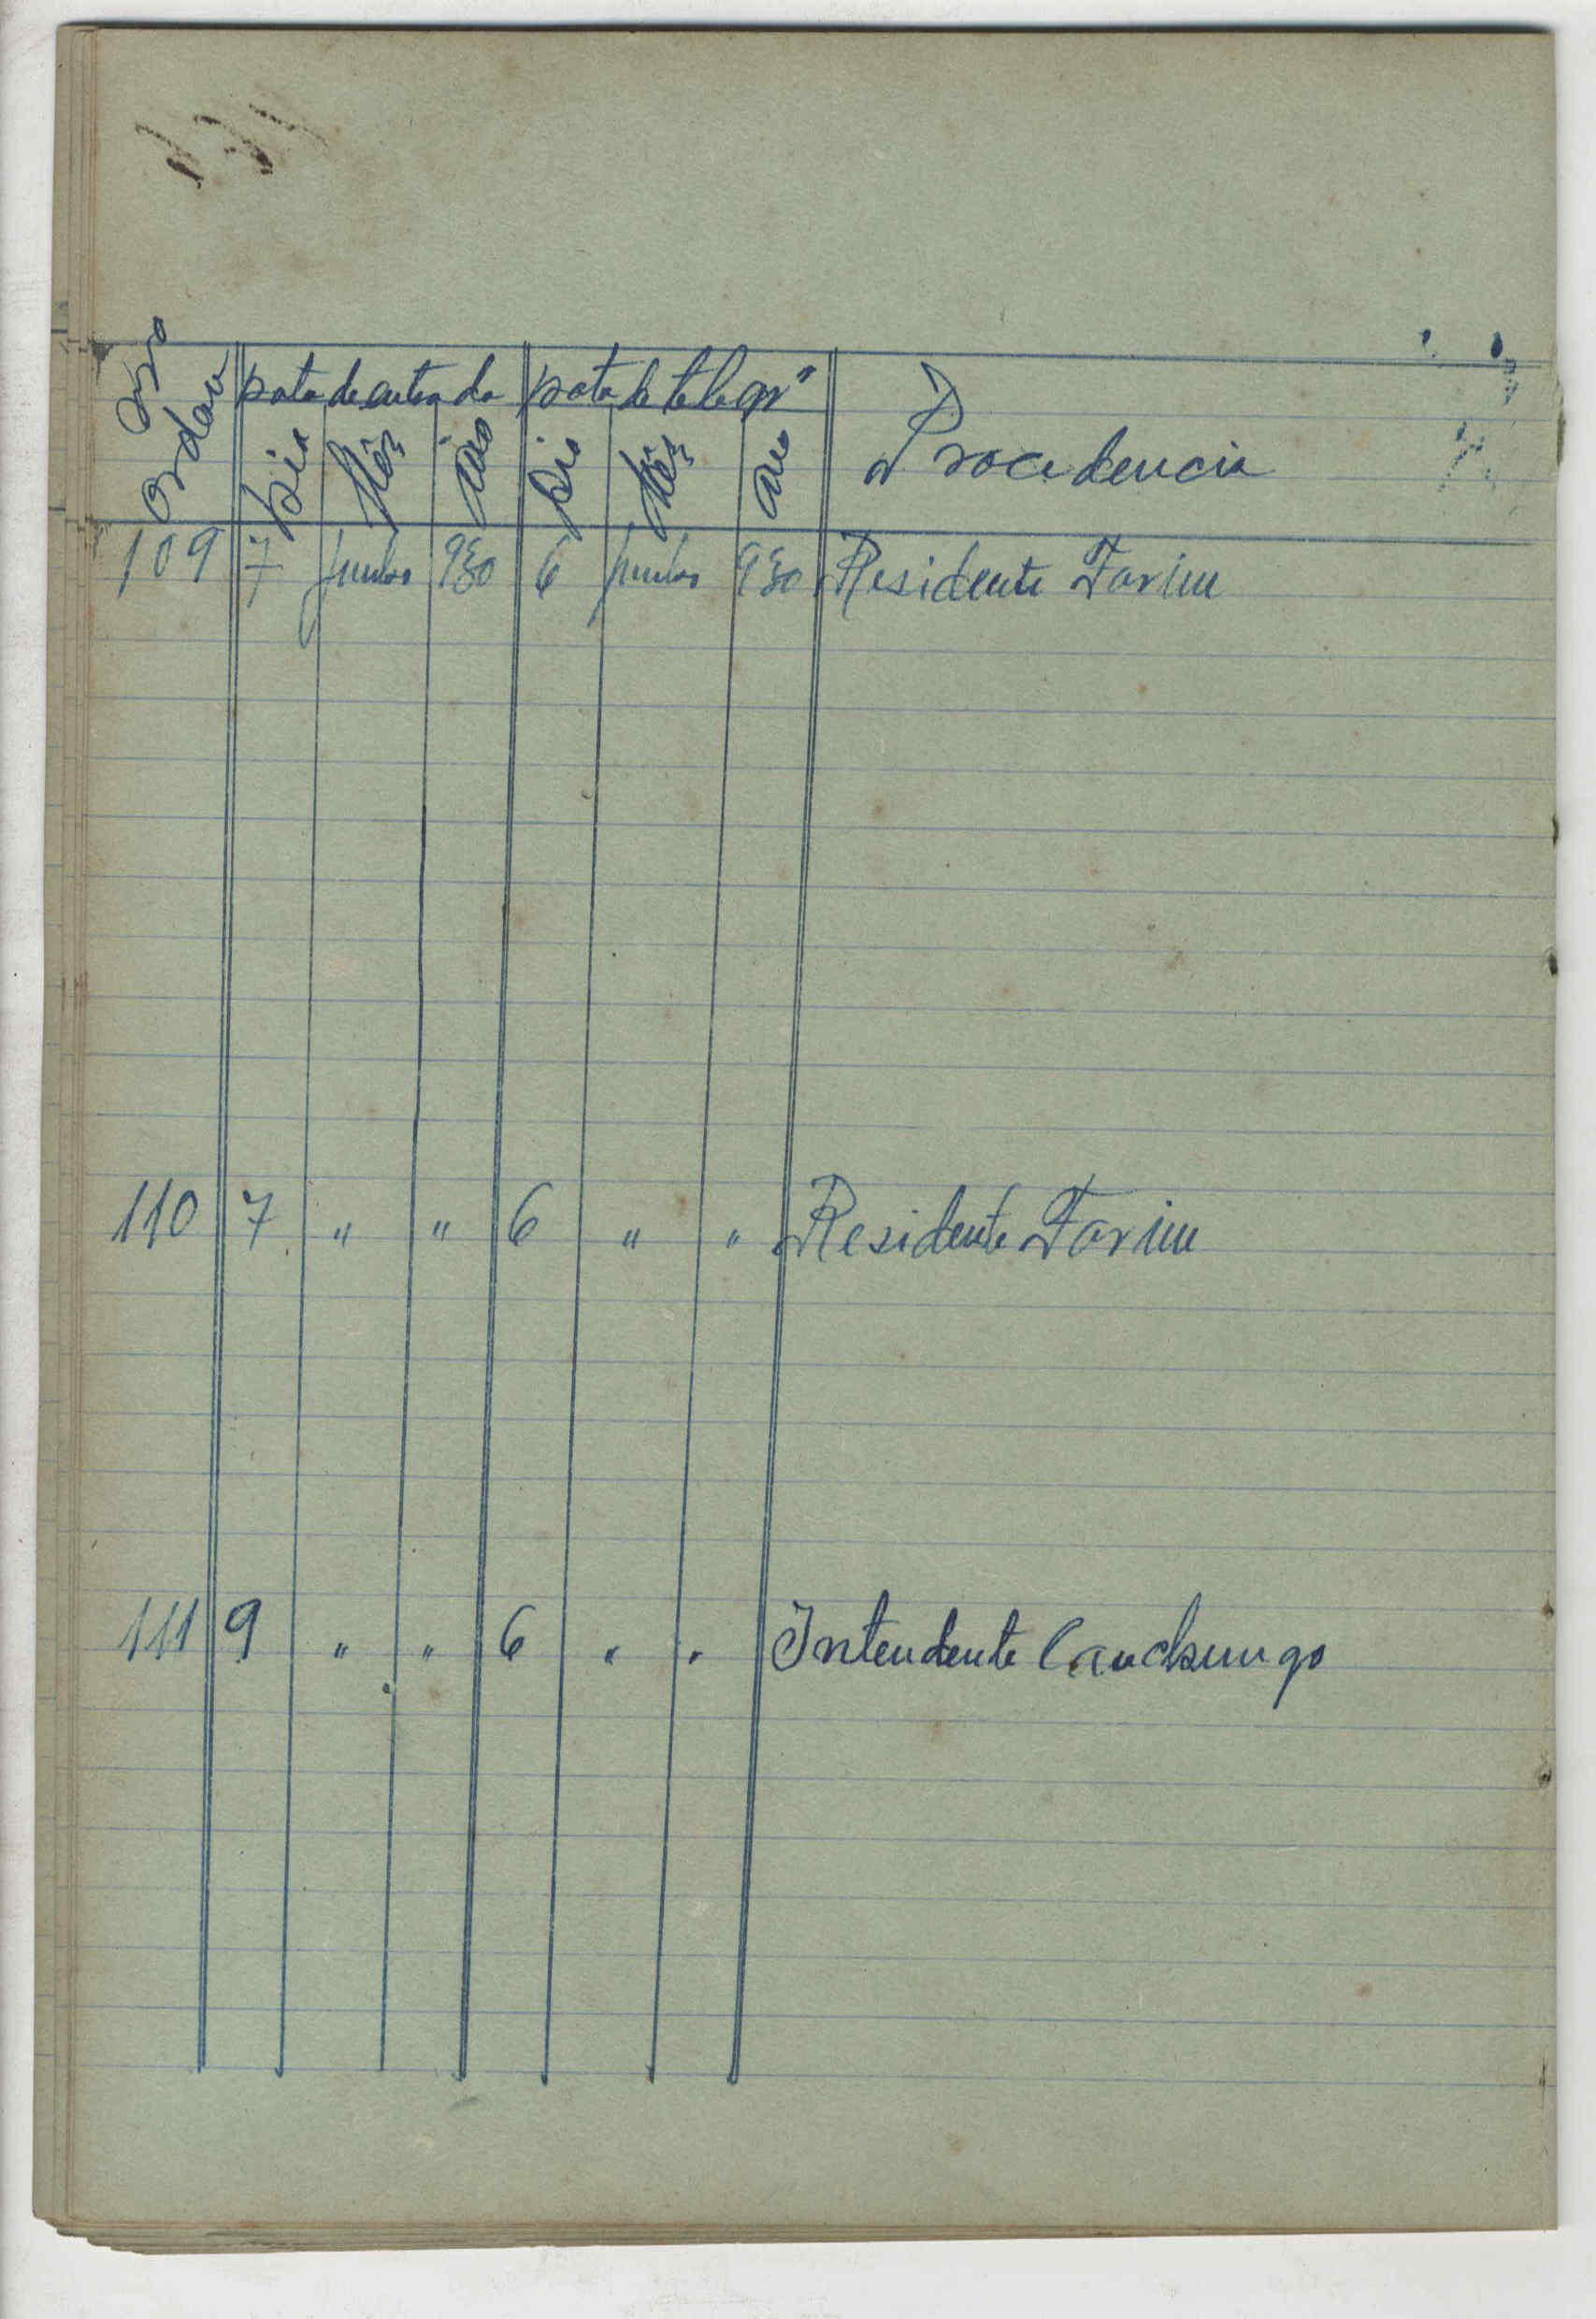 Nro Ordem
Data de entrada Data do telegrª
Dia Mês Ano Dia Mês Ano Procedencia
109 7 Junho 930 6 Junho 930 Residente Farim
110 7 " " 6 " " Residente Farim
111 9 " " 6 " " Intendente Canchungo